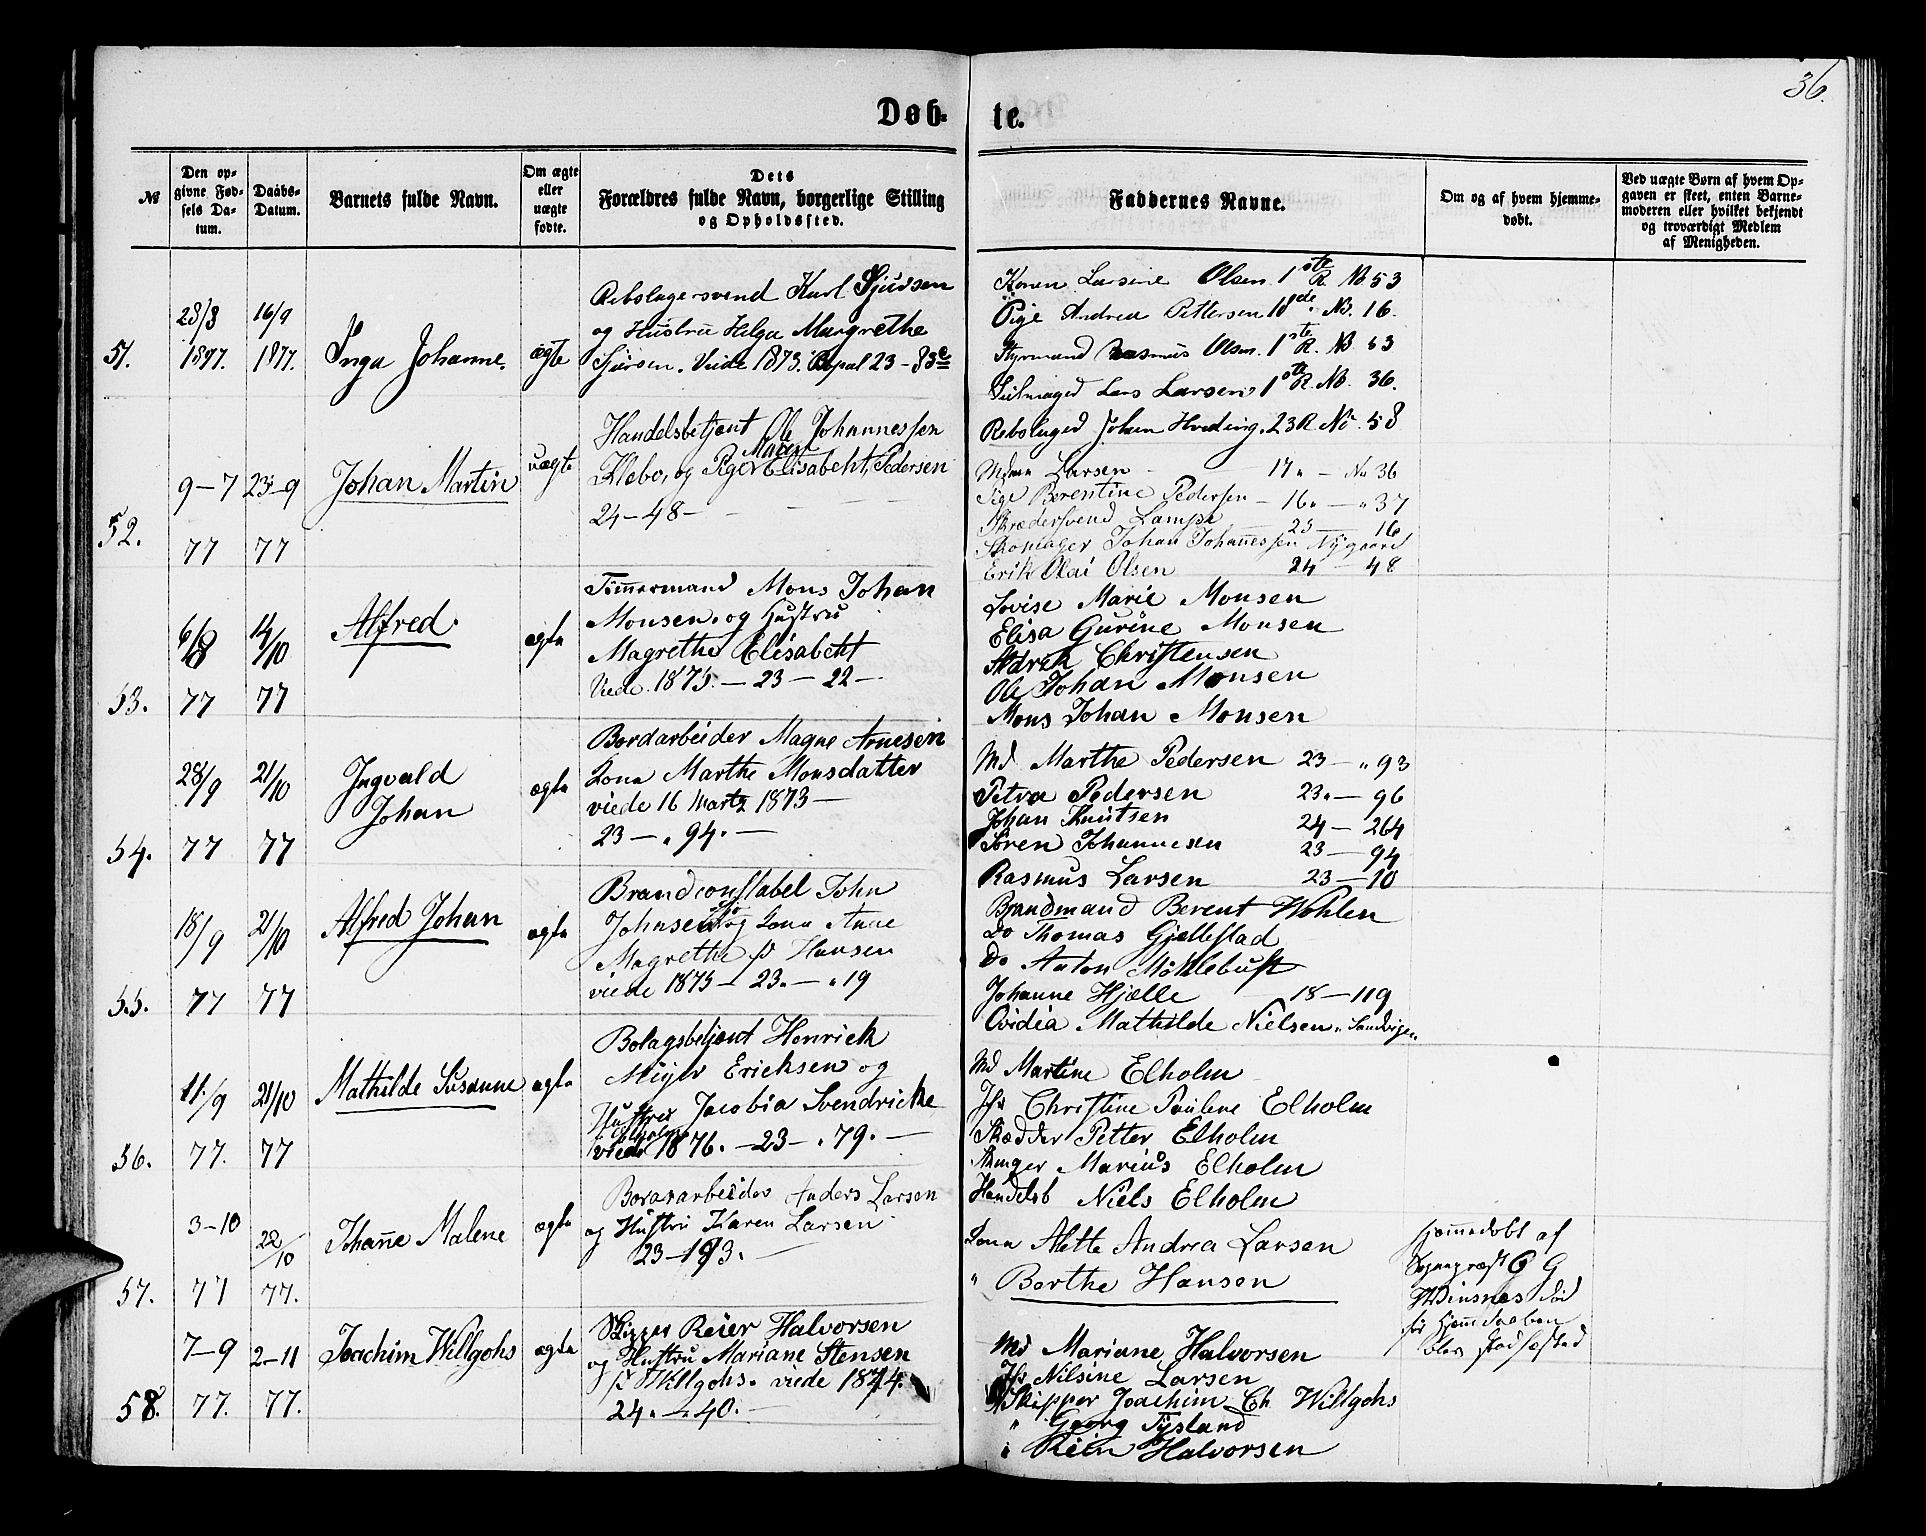 36.
Døb-
te.
№
Den op-
givne Fød-
sels Da-
tum.
Daabs-
Datum.
Barnets fulde Navn.
Om ægte
eller
uægte
fødte.
Dets
Forældres fulde Navn, borgerlige Stilling
og Opholdssted.
Faddernes Navne.
Om og af hvem hjemme-
døbt.
Ved uægte Børn af hvem Op-
gaven er skeet, enten Barne-
moderen eller hvilket bekjendt
og troværdigt Medlem
af Menigheden.
51.
28/8
1877.
16/9
1877.
Inga Johanne.
ægte
Rebslagersvend Karl Sjursen
og Hustru Helga Margrethe
Sjursen. Viede 1873. 23 - 83
Karen Larsine Olsen. 1ste R. No 53
Pige Andrea Pettersen 11de No. 16.
Styrmand Rasmus Olsen. 1ste R. No 53
Seilmager Lars Larsen, 1ste R. No. 36.
Rebslager Johan Hveding. 23 R No. 58
52.
9-7
77
23-9
77
Johan Martin
uægte
Handelsbetjent Ole Johannessen
Klebo, og Pige Elisabeht, Pedersen
24-48-
Madm Larsen - 17 " - No 36
Pige Berentine Pedersen - 16 " - " 37
Skrædersvend Lampe 23 - 16
Skomager Johan Johannessen Nygaard
Erik Olai Olsen 24 - 48
53.
6/8
77
14/10
77
Alfred.
ægte
Tømmermand Mons Johan
Monsen. og Hustru
Magrethe Elisabeht
Viede. 1875. - 23 - 22 -
Lovise Marie Monsen
Elisa Gurine Monsen
Christensen
Ole Johan Monsen
Mons Johan Monsen
54.
28/9
77
21/10
77
Ingvald
Johan
ægte
Bordarbeider Magne Arnesen
Kona Marthe Monsdatter
viede 16 Marts 1873 -
23 - " 94. -
Md Marthe Pedersen 23 - " 93
Petra Pedersen 23 " - 96
Johan Knutsen 24 - 264
Søren Johannesen 23 - 94
Rasmus Larsen 23 - 10
55.
18/9
77
21/10
77
Alfred Johan
ægte
Brandconstabel John
Johnsen og Kona Anne
Magrethe f Hansen
viede 1875 - 23. - " 19
Brandmand Berent Wohlen
Do Thomas Gjellestad
Do Anton Møhlebust
Johanne Hjælle 18 - 119
Ovidia Mathilde Nielsen " Sandvigen
56.
11/9
77.
21/10
77
Mathilde Susanne
ægte
Bolagsbetjent Henrick
Meyer Ericksen og
Hustru Jacobia Svendricke
Elholm
viede 1876. - 23 - " 79. -
Md Martine Elholm
Jfr Christine Pauline Elholm
Skædder Petter Elholm
Marius Elholm
Handelsb Niels Elholm
57.
3-10
77
22/10
77.
Johanne Malene
ægte
Anders Larsen
og Hustru Karen Larsen
23 - 193. -
Kona Alette Andrea Larsen
" Berthe Hansen
hjemmedøbt af
Sognepræst G G
Winsnes død
før Hjemmedaaben
blev stadfæsted
58.
7-9
77.
2-11
77.
Joachim Willgohs
ægte
Skipper Reier Halvorsen
og Hustru Mariane Stensen
f Willgohs. viede 1874.
24. - 40. -
Md Mariane Halvorsen
Jfr Nilsine Larsen
Skipper Joachim Ch Willgohs
" Georg Tysland
" Rein Halvorsen